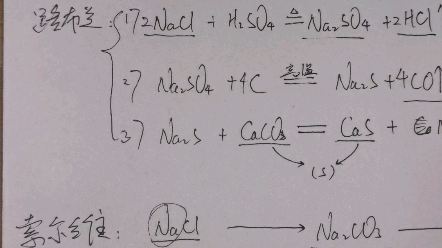 路布兰:
1) 2NaCl + H₂SO₄ ≜ Na₂SO₄ + 2HCl↑
2) Na₂SO₄ + 4C 高温 Na₂S + 4CO↑
3) Na₂S + CaCO₃ = CaS +
(s)
索尔维: NaCl ⟶ Na₂CO₃ —